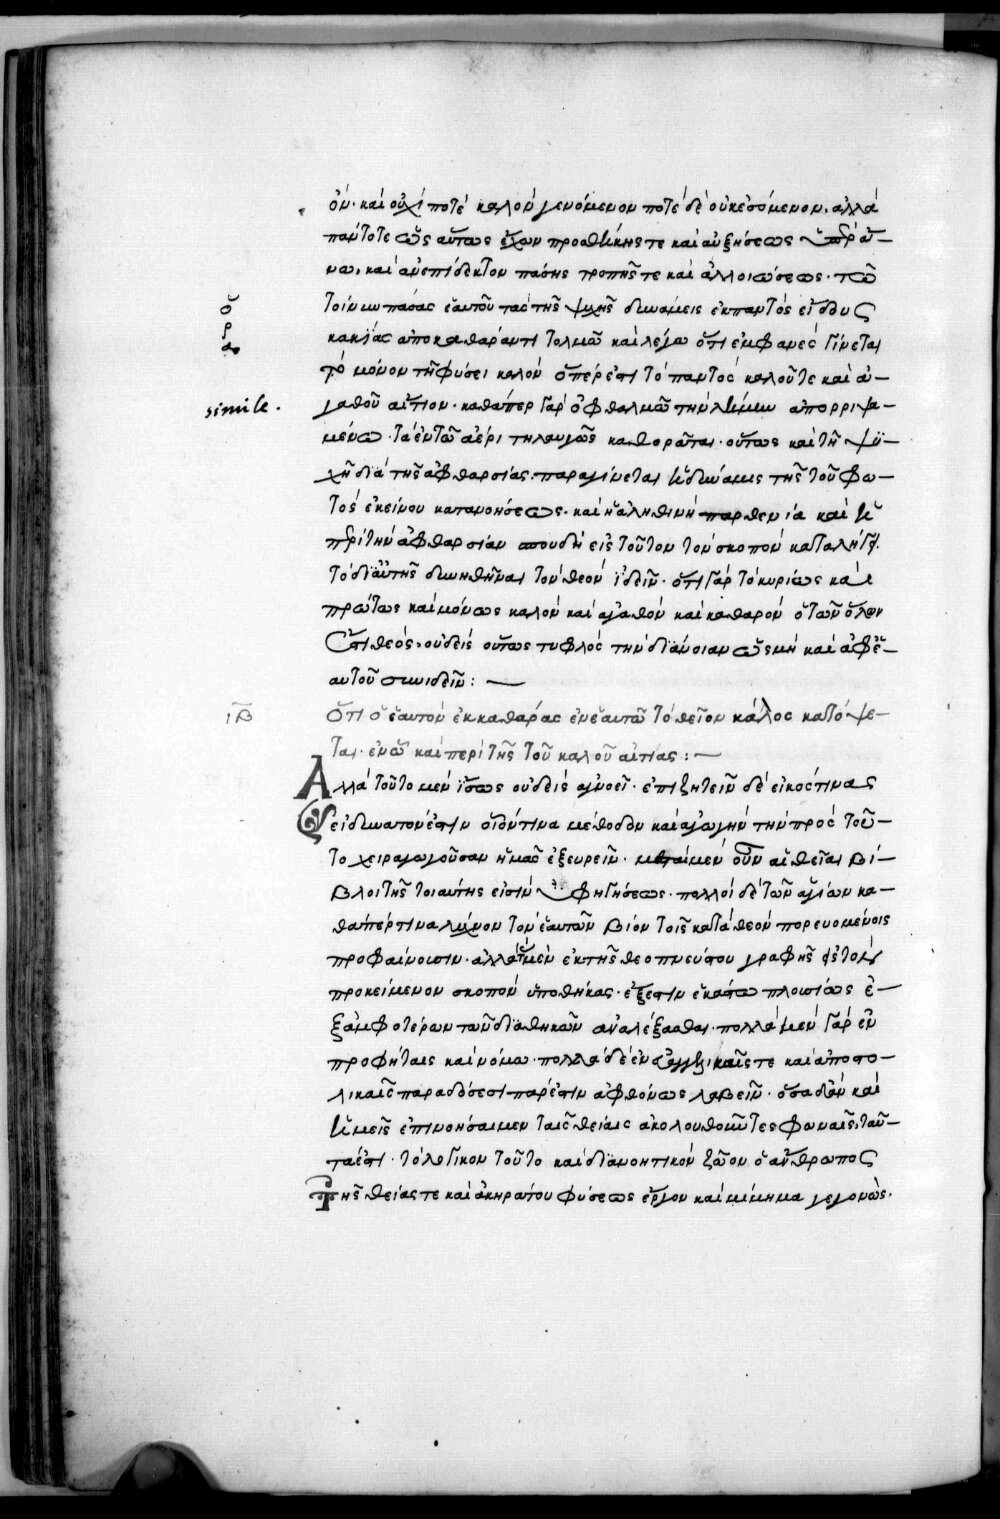 ὄν· καὶ οὐχὶ ποτὲ καλὸν γενόμενον ποτὲ δὲ οὐκ ἐσόμενον, ἀλλὰ
πάντοτε ὡς αὔτως ἔχων προσθήκης τε καὶ αὐξήσεως ὑπεράν-
νω, καὶ ἀνεπίδεκτον πάσης τροπῆς τε καὶ ἀλλοιώσεως· τῶ
ὅ
ρ
α
τοίνυν πάσας ἑαυτοῦ τὰς τῆς ψυχῆς δυνάμεις ἐκ παντὸς εἴδους
κακίας ἀποκαθάραντι τολμῶ καὶ λέγω ὅτι ἐμφανὲς γίνεται
τὸ μόνον τῆ φύσει καλὸν ὅπερ ἐστὶ τὸ παντὸς καλοῦ τε καὶ ἀ-
simile.
γαθοῦ αἴτιον· καθάπερ γὰρ ὀφθαλμῶ τὴν λήμην ἀπορριψα-
μένω· τὰ ἐν τῶ ἀέρι τηλαυγῶς καθορᾶται· οὕτως καὶ τῆ ψυ-
χῆ διὰ τῆς ἀφθαρσίας παραγίνεται ἡ δύναμις τῆς τοῦ φω-
τὸς ἐκείνου κατανοήσεως· καὶ ἡ ἀληθινὴ παρθενία καὶ ἡ
περὶ τὴν ἀφθαρσίαν σπουδὴ εἰς τοῦτον τὸν σκοπὸν καταλήγει
τὸ δι' αὐτῆς δυνηθῆναι τὸν θεὸν ἰδεῖν· ὅτι γὰρ τὸ κυρίως καὶ
πρώτως καὶ μόνως καλὸν καὶ ἀγαθὸν καὶ καθαρὸν ὁ τῶν ὅλων
ἐστὶ θεός, οὐδεὶς οὕτως τυφλὸς τὴν διάνοιαν ὡς μὴ καὶ ἀφ' ἑ-
αυτοῦ συνιδεῖν: —
ιβ
Ὅτι ὁ ἑαυτὸν ἐκκαθάρας ἐν ἑαυτῶ τὸ θεῖον κάλλος κατόψε-
ται· ἐν ὧ καὶ περὶ τῆς τοῦ καλοῦ αἰτίας: —
Ἀλλὰ τοῦτο μὲν ἴσως οὐδεὶς ἀγνοεῖ· ἐπιζητεῖν δὲ εἰκὸς τινὰς
εἰ δυνατόν ἐστιν οἱανδήτινα μέθοδον καὶ ἀγωγὴν τὴν πρὸς τοῦ-
το χειραγωγοῦσαν ἡμᾶς ἐξευρεῖν· μεσταὶ μὲν οὖν αἱ θεῖαι βί-
βλοι τῆς τοιαύτης εἰσὶν ὑφηγήσεως· πολλοὶ δὲ τῶν ἁγίων κα-
θάπέρ τινα λύχνον τὸν ἑαυτῶν βίον τοῖς κατὰ θεὸν πορευομένοις
προφαίνουσιν· ἀλλὰ τὰς μὲν ἐκ τῆς θεοπνεύστου γραφῆς εἰς τὸν
προκείμενον σκοπὸν ὑποθήκας· ἔξεστιν ἑκάστω πλουσίως ἐ-
ξ ἀμφοτέρων τῶν διαθηκῶν ἀναλέξασθαι· πολλὰ μὲν γὰρ ἐν
προφήταις καὶ νόμω· πολλὰ δὲ ἐν εὐαγγελικαῖς τε καὶ ἀποστο-
λικαῖς παραδόσεσι πάρεστιν ἀφθόνως λαβεῖν· ὅσα δ' ἂν καὶ
ἡμεῖς ἐπινοήσαιμεν ταῖς θείαις ἀκολουθοῦντες φωναῖς, ταῦ-
τά ἐστι· τὸ λογικὸν τοῦτο καὶ διανοητικὸν ζῶον ὁ ἄνθρωπος
τῆς θείας τε καὶ ἀκηράτου φύσεως ἔργον καὶ μίμημα γεγονώς.